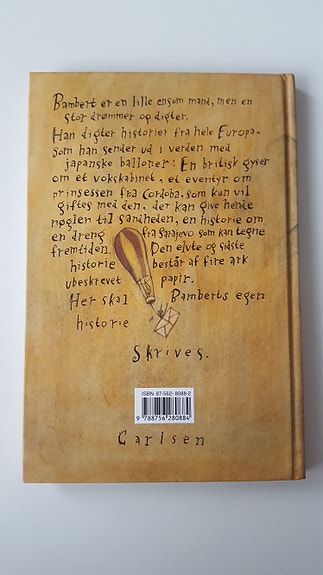 Bambert er en lille ensom mand, men en
stor drømmer og digter.
Han digter historier fra hele Europa,
som han sender ud i verden med
japanske balloner: En britisk gyser
om et vokskabinet, et eventyr om
prinsessen fra Cordoba, som kun vil
giftes med den, der kan give hende
nøglen til sandheden, en historie om
en dreng fra Sarajevo som kan tegne
fremtiden. Den elvte og sidste
historie består af fire ark
ubeskrevet papir.
Her skal Bamberts egen
historie
Skrives.
ISBN 87-562-8088-2
9 788756 280884
Carlsen